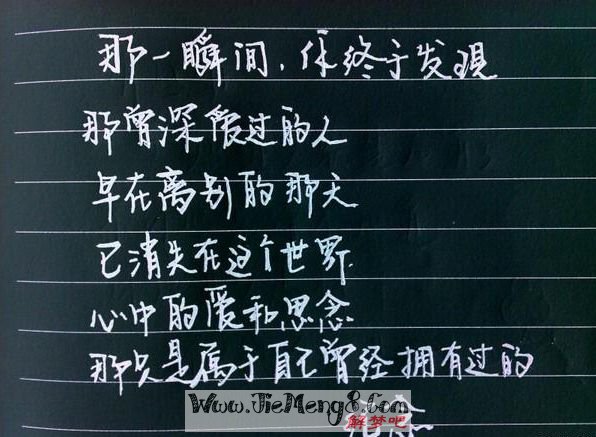 那一瞬间，你终于发現
那曾深爱过的人
早在离别的那天
已消失在这个世界.
心中的爱和思念
那只是属于自己曾经拥有过的
念
Www.JieMeng8.com
解梦吧